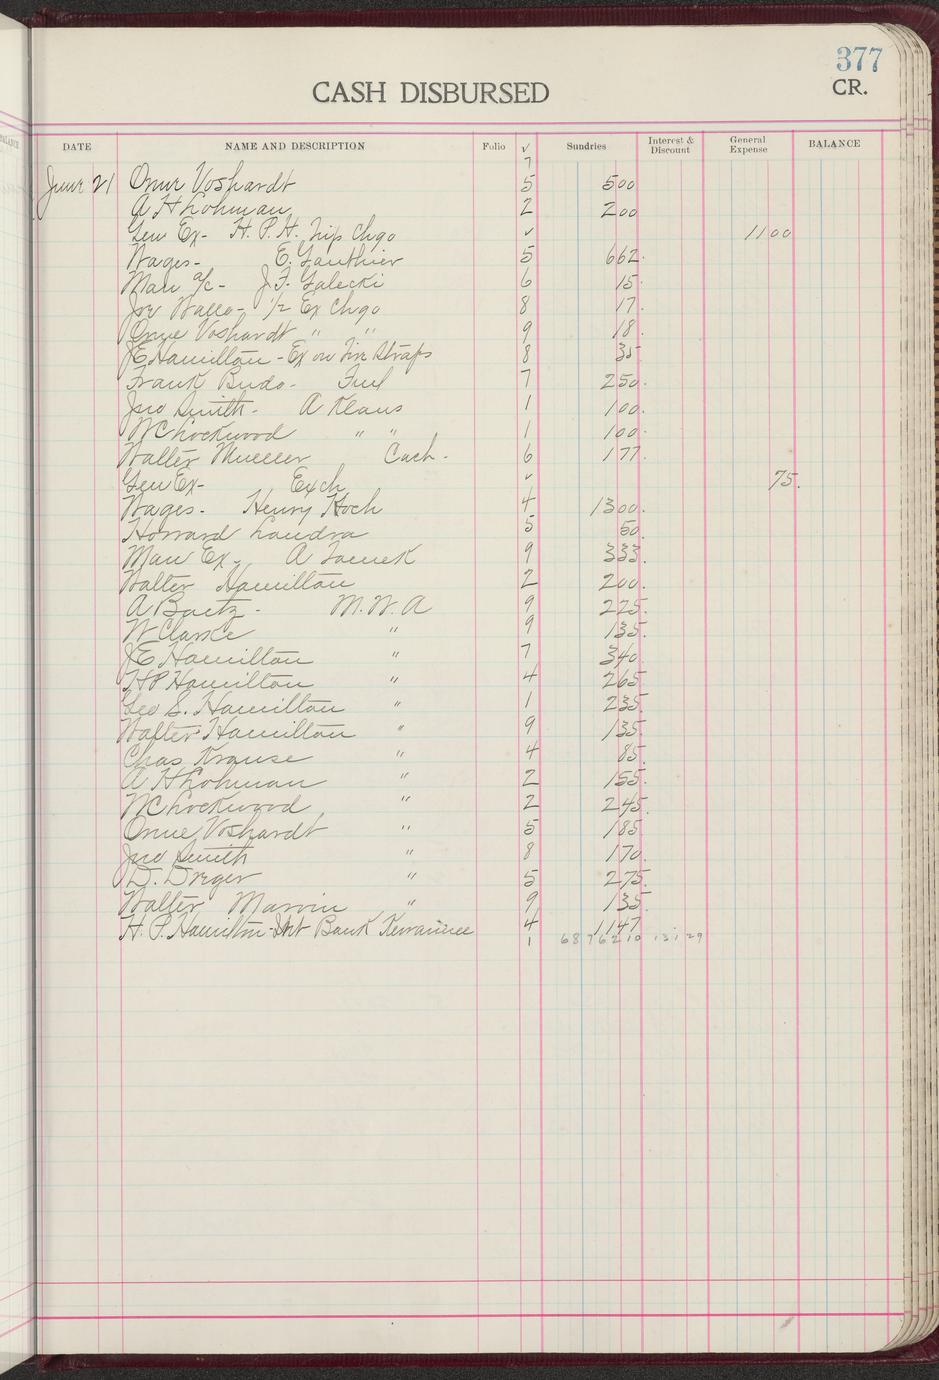 377
CASH DISBURSED
CR.
DATE NAME AND DESCRIPTION Folio √ Sundries Interest & Discount General Expense BALANCE
7
June 21 Onue Voshardt 5 500
A H Lohman 2 200
Gen Ex- H. P. H. Trip Chgo √ 1100
Wages- E. Gauthier 5 662.
Man a/c - J. F. Galecki 6 15.
Joe Wallo- 1/2 Ex Chgo 8 17.
Onue Voshardt " " 9 18.
J E Hamilton - Ex on Tire Straps 8 35
Frank Budo- Fuel 7 250.
Jno Smith- A Klaus 1 100.
W C Lockwood " " 1 100.
Walter Mueller Cash. 6 177.
Gen Ex- Exch √ 75.
Wages- Henry Koch 4 1300.
Howard Landra 5 50.
Man Ex- A 9 333.
Walter Hamilton 2 200.
A Baetz - M. W. A 9 225.
W Clarke " 9 135.
J E Hamilton " 7 340.
H P Hamilton " 4 265.
Geo S. Hamilton " 1 235.
Walter Hamilton " 9 135.
Chas Krause " 4 85.
A H Lohman " 2 155.
W C Lockwood " 2 245.
Onue Voshardt " 5 185.
Jno Smith " 8 170.
D. Dreger " 5 275.
Walter Marvin " 9 135.
H. P. Hamilton Int Bank Kewaunee 4 1147
1 6876210 13129